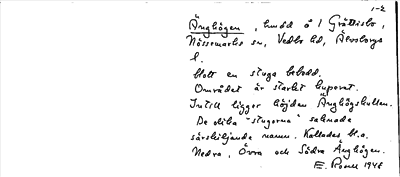 1-2
Änghögen, hmdd å 1 Grättisbo,
Nössemarks sn, Vedbo hd, Älvsborgs
l.
blott en stuga bebodd.
Området är starkt kuperat.
Intill ligger höjden Änghögskullen.
De olika "stugorna" saknade
särskiljande namn. Kallades bl.a.
Nedra, Övra och Södra Änghögen.
E. 1948